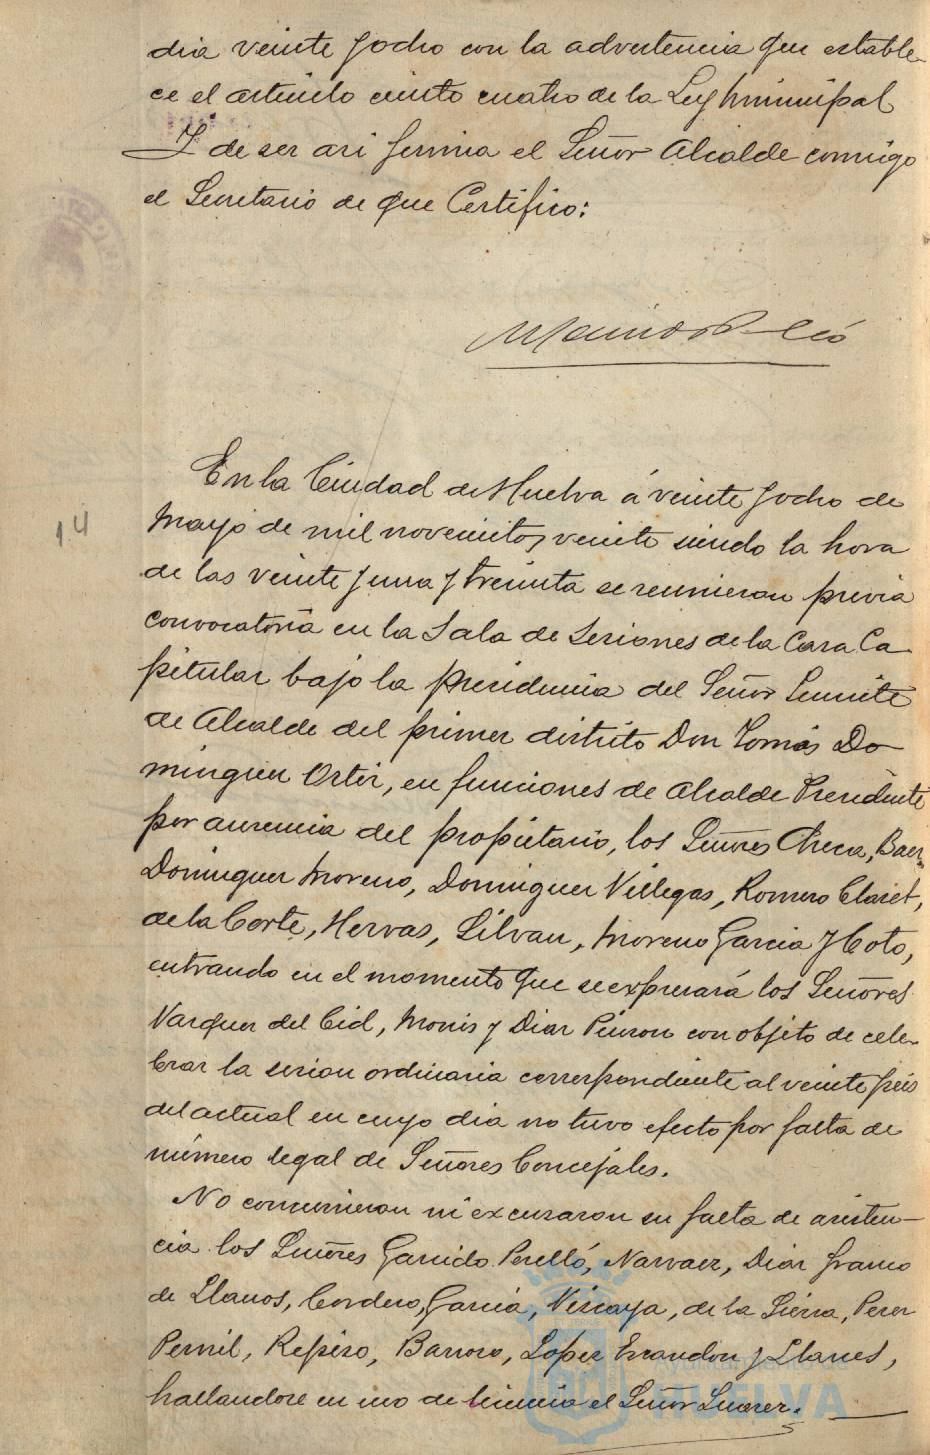 dia veinte y ocho con la advertencia que estable-
ce el artículo ciento cuatro de la Ley Municipal
Y de ser asi firma el Señor Alcalde conmigo
el Secretario de que Certifico:
En la Ciudad de Huelva á veinte y ocho de
Mayo de mil novecientos veinte siendo la hora
de las veinte y una y treinta se reunieron previa
convocatoria en la Sala de Sesiones de la Casa Ca-
pitular bajo la presidencia del Señor Teniente
de Alcalde del primer distrito Don Tomás Do-
minguez Ortiz, en funciones de Alcalde Presidente
por ausencia del propietario, los Señores Checa, Baez,
Dominguez Moreno, Dominguez Villegas, Romero Claret,
de la Corte, Hervas, Silvan, Moreno Garcia y Coto,
entrando en el momento que se expresará los Señores
Vazquez del Cid, Monis y Diaz Pinzon con objeto de cele-
brar la sesion ordinaria correspondiente al veinte y seis
del actual en cuyo dia no tuvo efecto por falta de
número legal de Señores Concejales.
No concurrieron ni excusaron su falta de asisten-
cia los Señores Garrido Perelló, Narvaez, Diaz Franco
de Llanos, Cordero, Garcia, Vizcaya, de la Sierra, Perez
Pernil, Repiso, Barroso, Lopez y Llanes,
hallandose en uso de licencia el Señor Suarez.
14
Ayuntamiento de
HUELVA